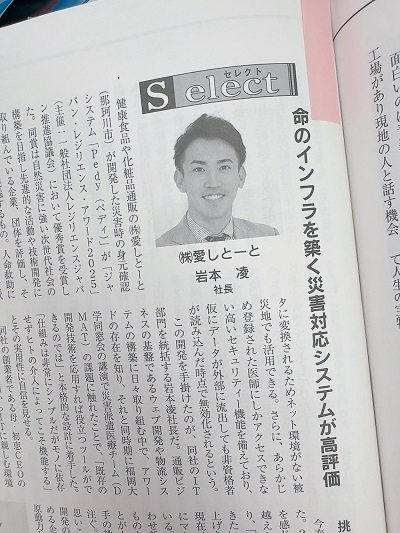 面白いのは
工場があり現地の人と話す機会
て人生の宝
命のインフラを築く災害対応システムが高評価
セレクト
Select
㈱愛しとーと
岩本 凌
社長
健康食品や化粧品通販の㈱愛しとーと
(那珂川市)が開発した災害時の身元確認
システム「Pedy(ペディ)」が「ジャ
パン・レジリエンス・アワード2025」
(主催:一般社団法人レジリエンスジャパ
ン推進協議会)において優秀賞を受賞し
た。同賞は自然災害に強い次世代社会の
構築を目指し先進的な活動や技術開発に
取り組んでいる企業、団体を評価し、そ
するもの。人命救助に
タに変換されるためネット環境がない被
災地でも活用できる。さらに、あらかじ
め登録された医師にしかアクセスできな
い高いセキュリティー機能を備えており、
仮にデータが外部に流出しても非資格者
が読み込んだ時点で無効化されるという。
この開発を手掛けたのが、同社のIT
部門を統括する岩本凌社長だ。通販ビジ
ネスの基盤であるウェブ開発や物流シス
テムの構築に日々取り組む中で、アワー
ドの存在を知り、それと同時期に福岡大
学同窓会の講演で災害派遣医療チーム(D
MAT)の課題に触れたことで、「既存の
開発技術を応用すれば役立つツールがで
きるのでは」と本格的な設計に着手した。
「仕組みは非常にシンプルだがモノに依存
せずヒトの介入によってこそ機能する」
とその実用性に自信を見せる。
同社の創業者である母・初恵CEOの
ITに親しむ環境
挑